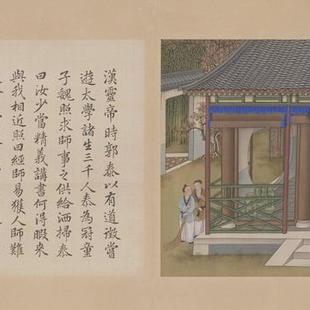 漢靈帝時郭泰以有道徵嘗
遊太學諸生三千人泰為冠童
子魏照求師事之供給洒掃泰
曰汝少當精義講書何得暇來
與我相近照曰經師易獲人師難